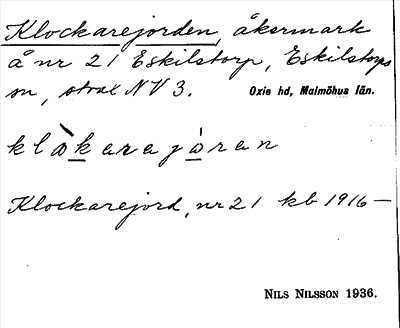 Klockarejorden, åkermark
å nr 21 Eskilstorp, Eskilstorps
sn, strax NV 3. Oxie hd, Malmöhus län.
Klockarejord, nr 21 kb 1916—
NILS NILSSON 1936.